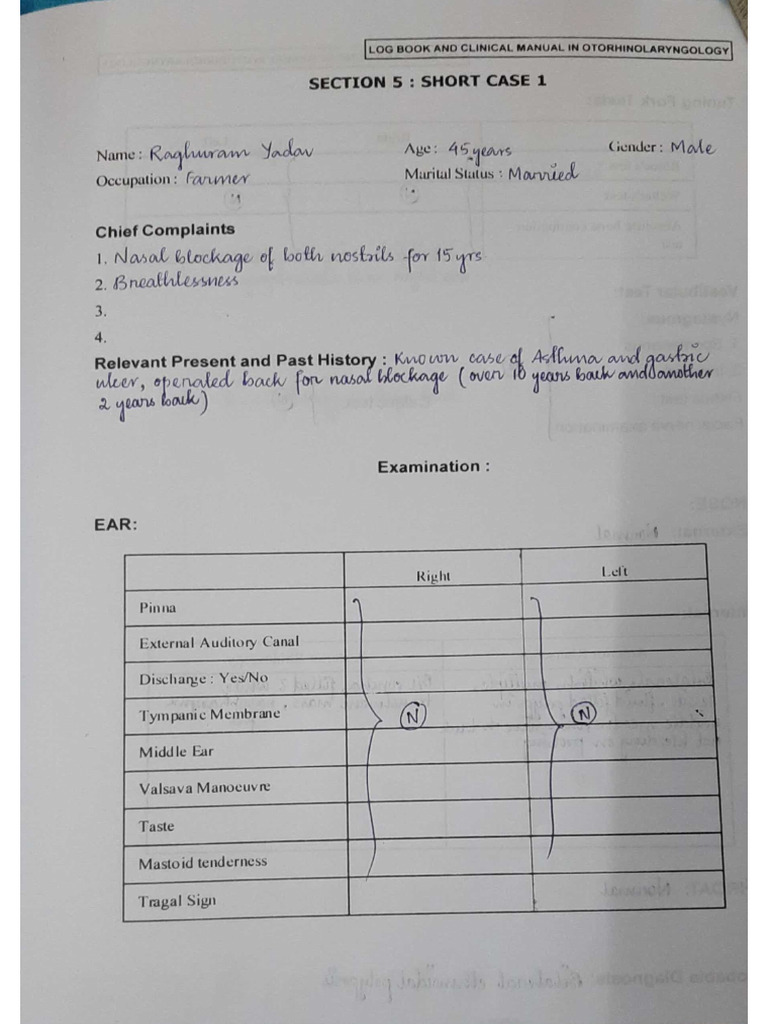 LOG BOOK AND CLINICAL MANUAL IN OTORHINOLARYNGOLOGY
SECTION 5 : SHORT CASE 1
Name : Raghuram Yadav Age : 45 years Gender : Male
Occupation : Farmer Marital Status : Married
Chief Complaints
1. Nasal blockage of both nostrils for 15 yrs
2. Breathlessness
3.
4.
Relevant Present and Past History : Known case of Asthma and gastric
ulcer, operated back for nasal blockage (over 10 years back and another
2 years back)
Examination :
EAR:
Right Left
Pinna
External Auditory Canal
Discharge : Yes/No
Tympanic Membrane N N
Middle Ear
Valsava Manoeuvre
Taste
Mastoid tenderness
Tragal Sign